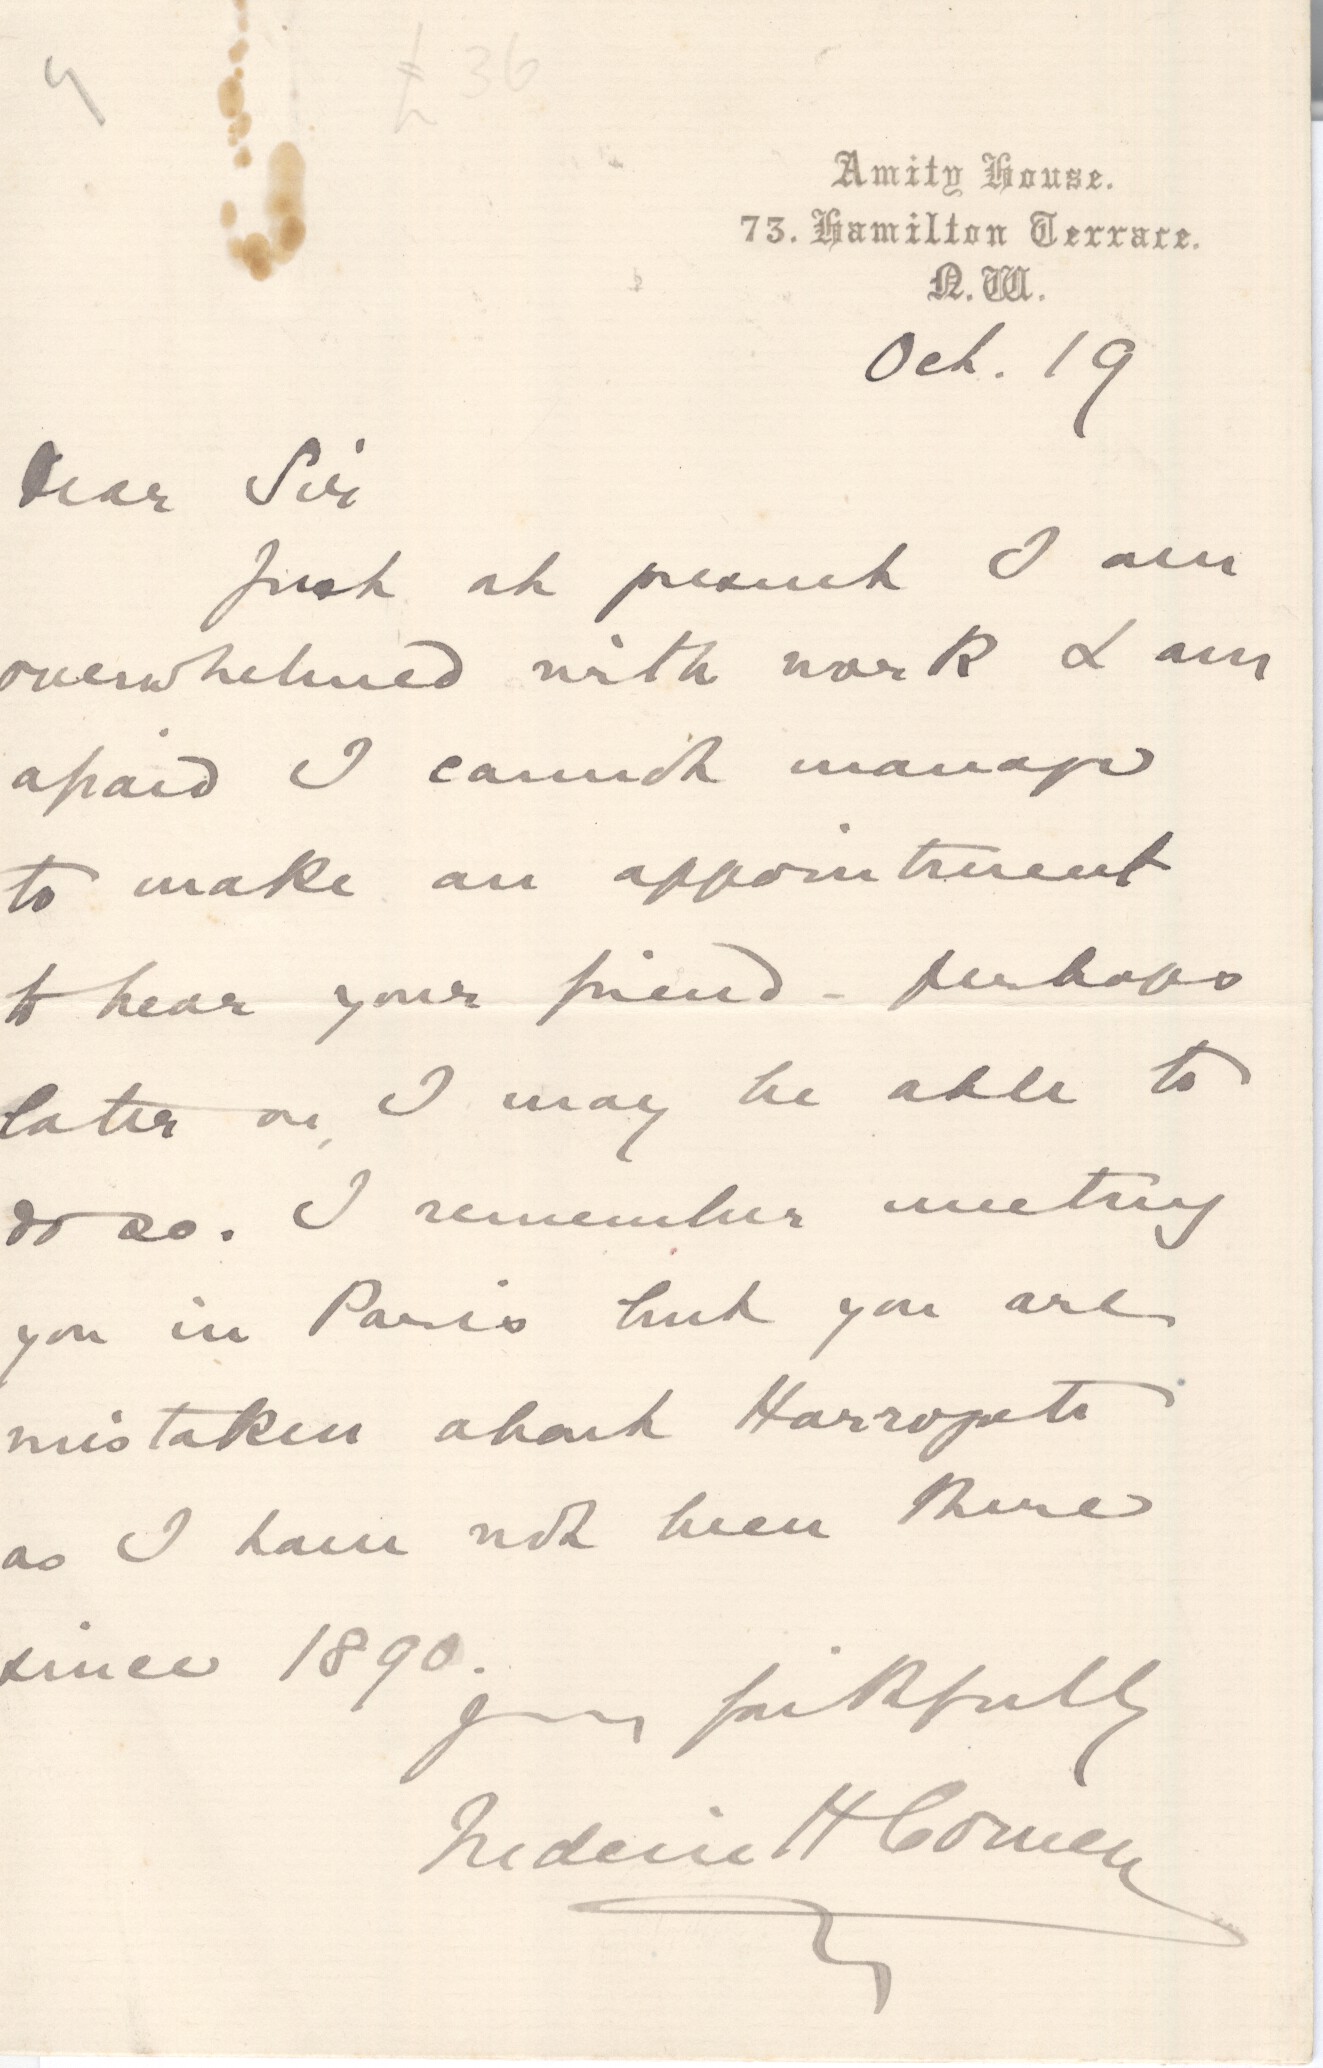 £36
Amity House.
73. Hamilton Terrace.
N.W.
Oct. 19
Dear Sir
Just at present I am
overwhelmed with work & am
afraid I cannot manage
to make an appointment
to hear your friend - perhaps
later on, I may be able to
do so. I remember meeting
you in Paris but you are
mistaken about Harrogate
as I have not been there
since 1890.
Yours faithfully
Frederic H Cowen